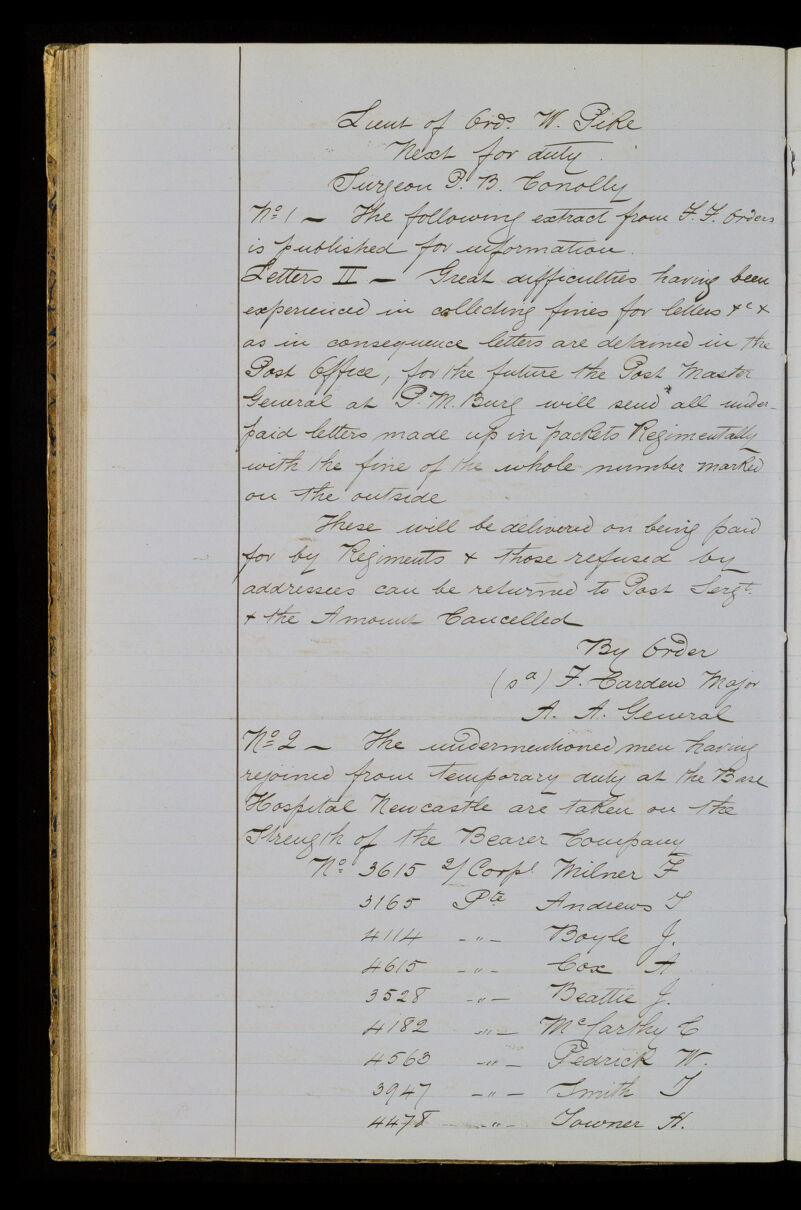 Lieut of Ords. W. Pike
Next for duty.
Surgeon P. B. Conolly
No. 1 — The following extract from F. F. Orders
is published for information.
Letters II — Great difficulties having been
experienced in collecting fines for letters &c &
as in consequence letters are detained in the
Post Office, for the future the Post Master
General at P. M. Burg will send all under-
paid letters made up in packets Regimentally
with the fine of the whole number marked
on the outside
These will be delivered on being paid
for by Regiments & those refused by
addressees can be returned to Post Sergt.
& the Amount Cancelled
By Order
(sd) F. Carden Major
A. A. General
No. 2 — The undermentioned men having
rejoined from temporary duty at the Base
Hospital Newcastle are taken on the
Strength of the Bearer Company
No. 3615 2/Corpl Milner F
3165 Pte Andrews T
4114 -"- Boyle J.
4615 -"- Cox A
3528 -"- Beattie J.
4182 -"- McCarthy C
4563 -"- Pedrick W.
3947 -"- Smith T
4478 -"- Towner H.